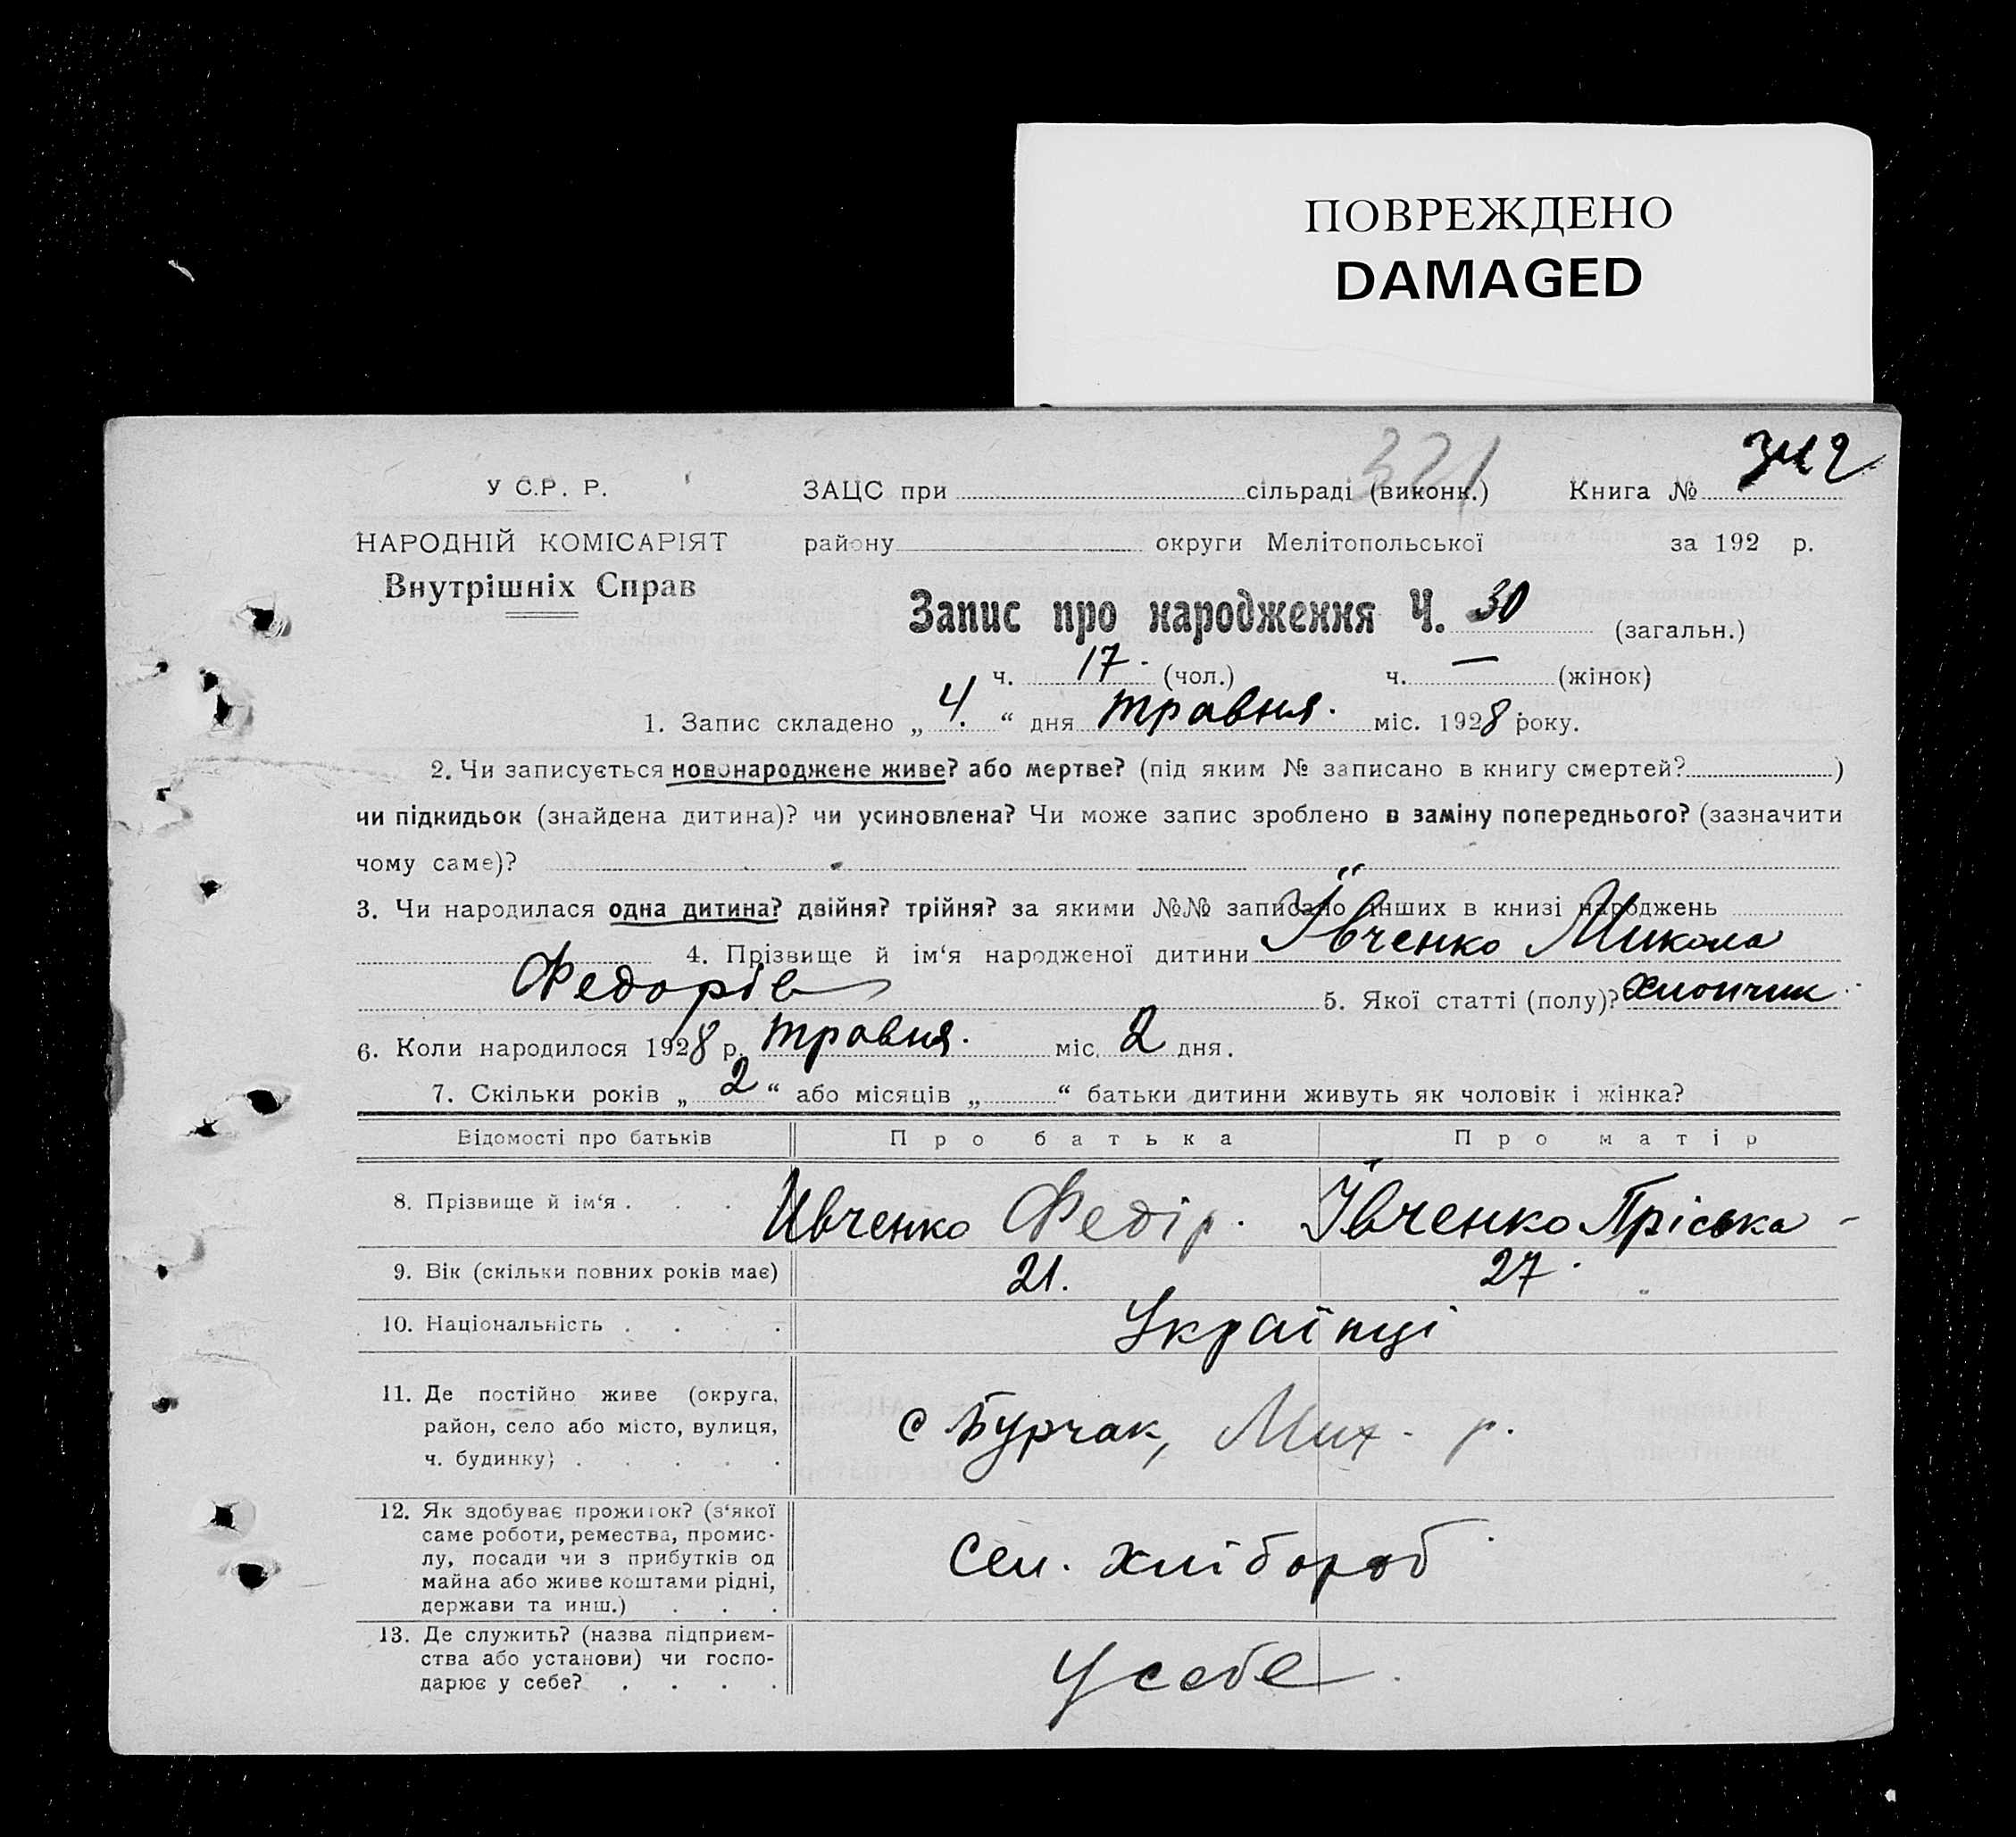 ПОВРЕЖДЕНО
DAMAGED
321
У С.Р. Р. ЗАЦС при сільраді (виконк.) Книга № 342
НАРОДНІЙ КОМІСАРІЯТ району округи Мелітопольської за 192 р.
Внутрішніх Справ
Запис про народження Ч. 30 (загальн.)
ч. 17. (чол.) ч. — (жінок)
1. Запис складено „ 4. “ дня травня. міс. 1928 року.
2. Чи записується новонароджене живе? або мертве? (під яким № записано в книгу смертей? )
чи підкидьок (знайдена дитина)? чи усиновлена? Чи може запис зроблено в заміну попереднього? (зазначити
чому саме)?
3. Чи народилася одна дитина? двійня? трійня? за якими №№ записано інших в книзі народжень
4. Прізвище й ім‘я народженої дитини Ївченко Микола
Федорів 5. Якої статті (полу)? Хлопчик
6. Коли народилося 1928 р. травня. міс. 2 дня.
7. Скільки років „ 2 “ або місяців „ “ батьки дитини живуть як чоловік і жінка?
Відомості про батьків Про батька Про матір
8. Прізвище й ім‘я . . . Ивченко Федір. Ївченко Пріська
9. Вік (скільки повних років має) 21. 27.
10. Національність . . . . Українці
11. Де постійно живе (округа,
район, село або місто, вулиця,
ч. будинку) . . . . .
с Бурчак, Мих. р.
12. Як здобуває прожиток? (з‘якої
саме роботи, ремества, промис-
лу, посади чи з прибутків од
майна або живе коштами рідні,
держави та инш.) . . .
Сел. хлібороб
13. Де служить? (назва підприєм-
ства або установи) чи госпо-
дарює у себе? . . . .
У себе